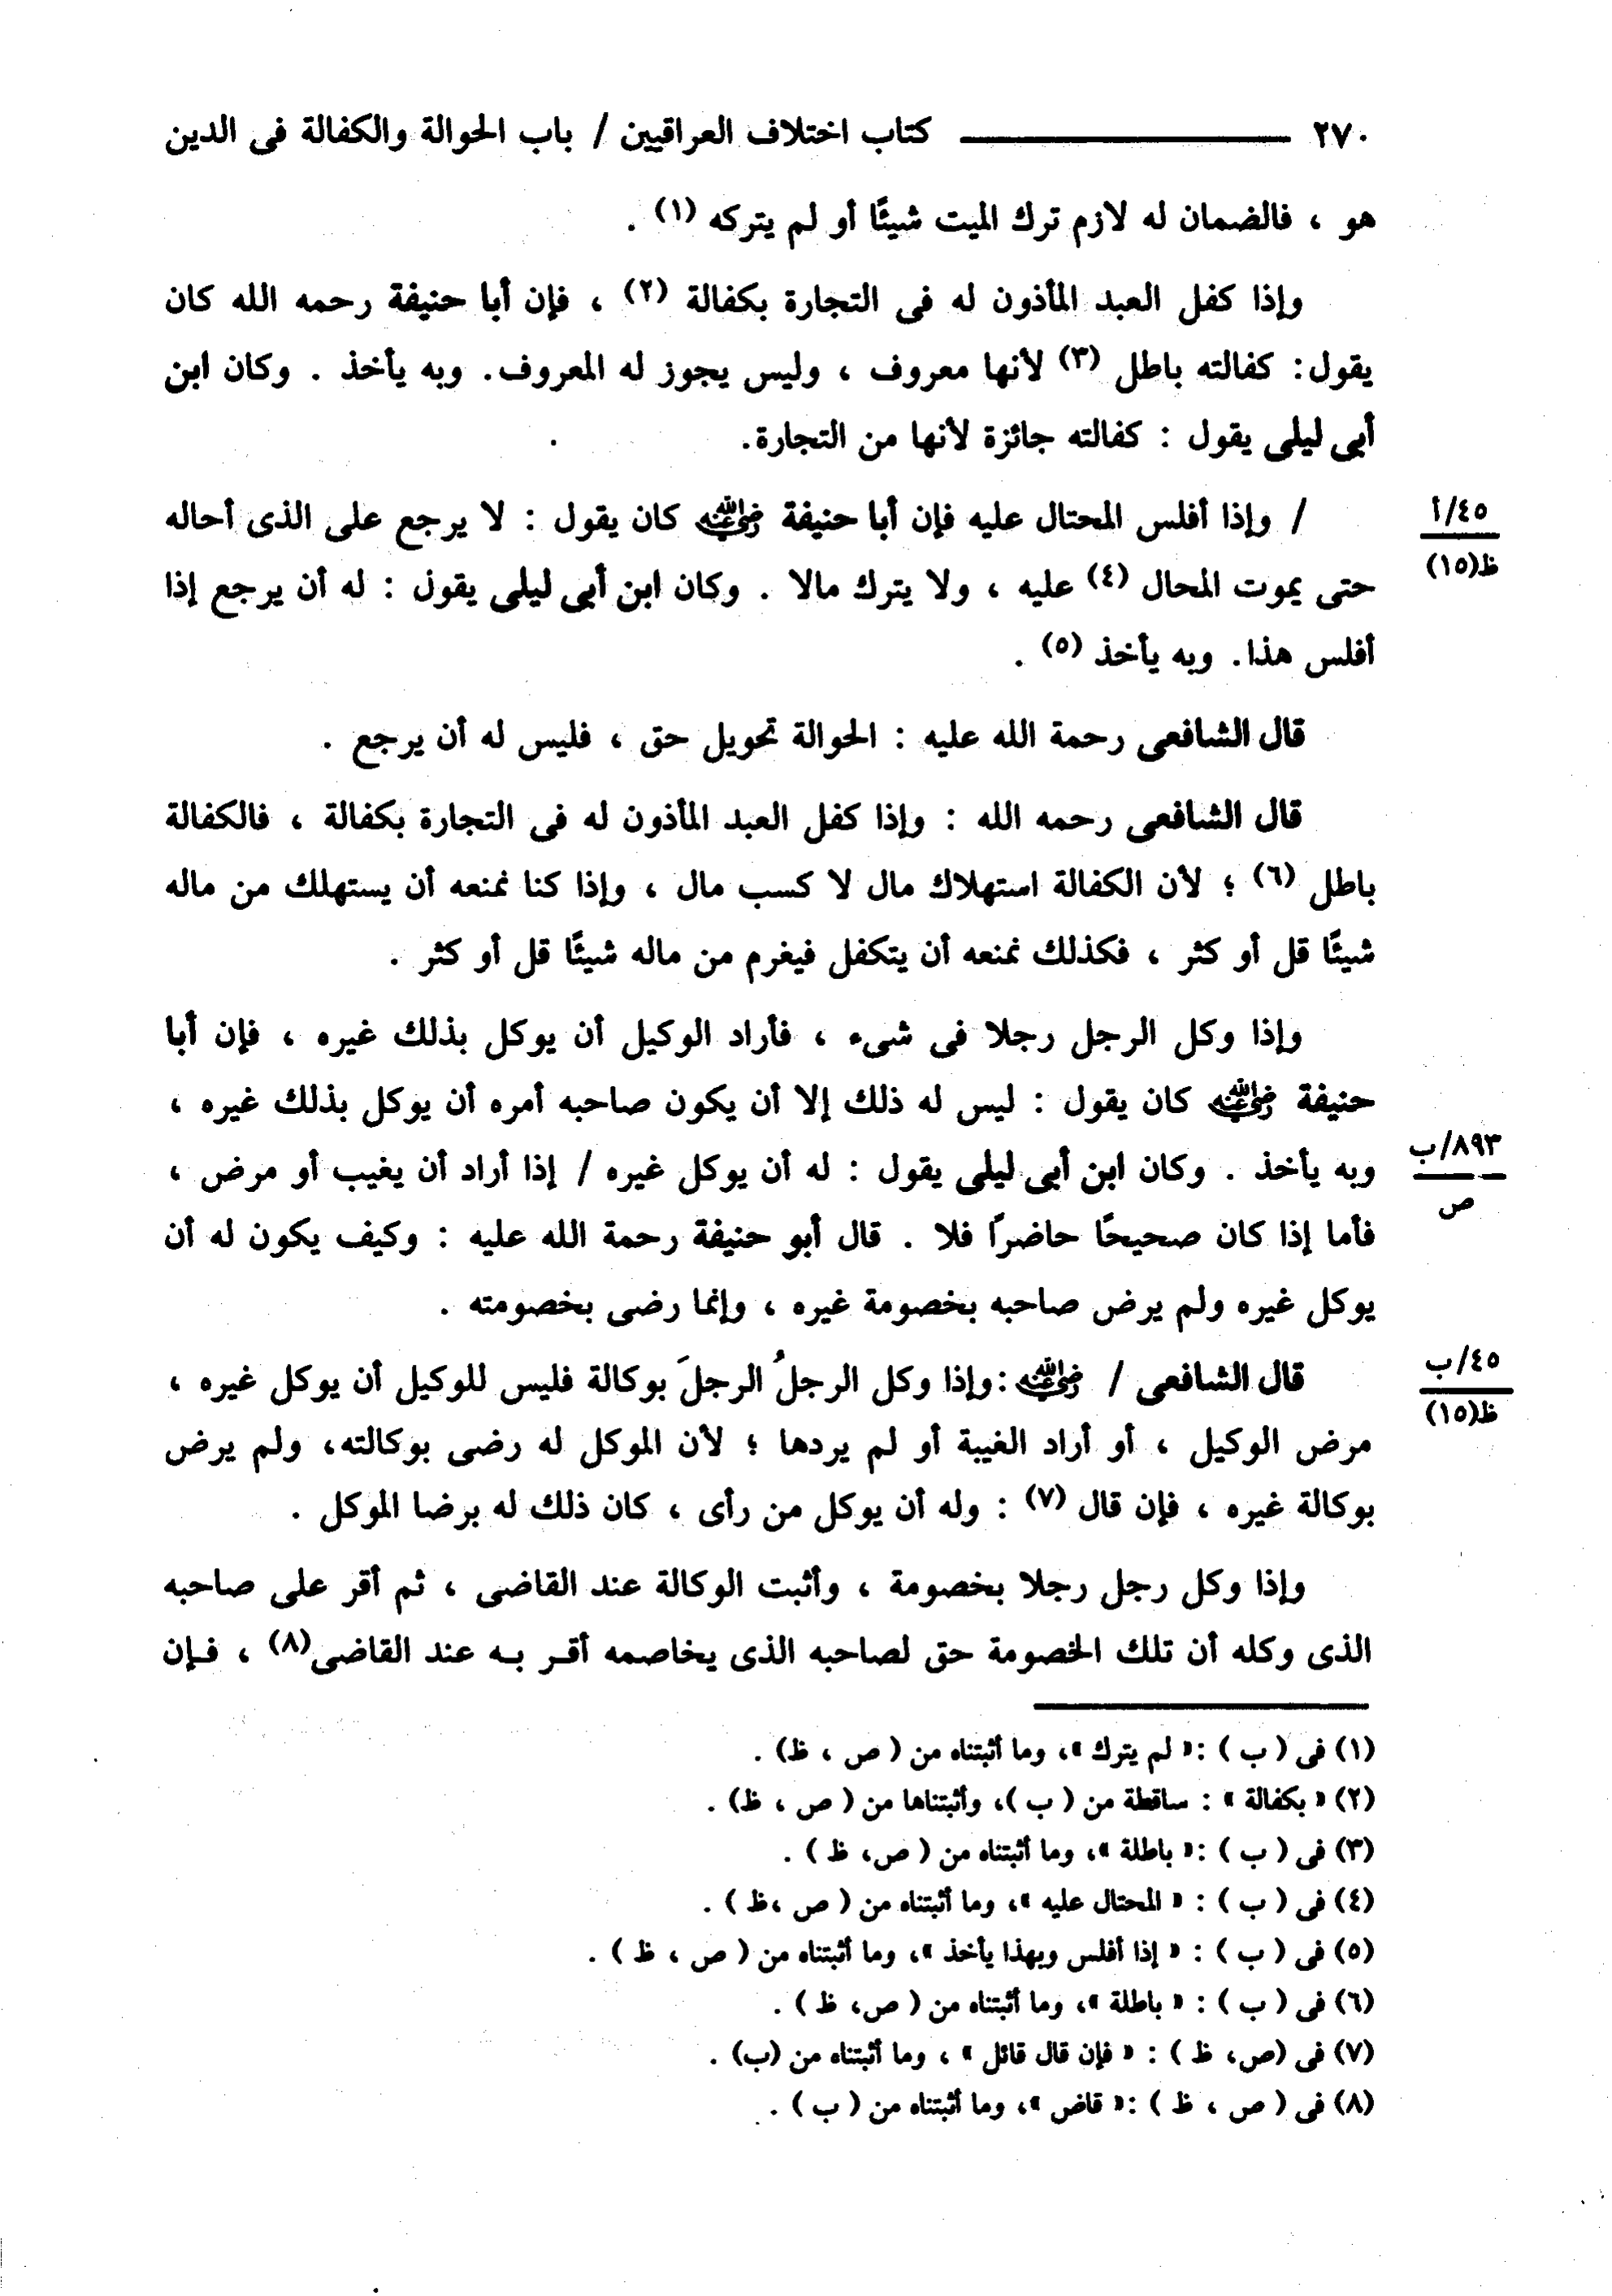 ٢٧٠ ـــــــ كتاب اختلاف العراقيين / باب الحوالة والكفالة فى الدين
هو ، فالضمان له لازم ترك الميت شيئًا أو لم يتركه (١) .
وإذا كفل العبد المأذون له فى التجارة بكفالة (٢) ، فإن أبا حنيفة رحمه الله كان
يقول: كفالته باطل (٣) لأنها معروف ، وليس يجوز له المعروف. وبه يأخذ . وكان ابن
أبى ليلى يقول : كفالته جائزة لأنها من التجارة.
/ وإذا أفلس المحتال عليه فإن أبا حنيفة رضي الله عنه كان يقول : لا يرجع على الذى أحاله
٤٥/أ
ظ(١٥)
حتى يموت المحال (٤) عليه ، ولا يترك مالا . وكان ابن أبى ليلى يقول : له أن يرجع إذا
أفلس هذا. وبه يأخذ (٥) .
قال الشافعى رحمة الله عليه : الحوالة تحويل حق ، فليس له أن يرجع .
قال الشافعى رحمه الله : وإذا كفل العبد المأذون له فى التجارة بكفالة ، فالكفالة
باطل (٦) ؛ لأن الكفالة استهلاك مال لا كسب مال ، وإذا كنا نمنعه أن يستهلك من ماله
شيئًا قل أو كثر ، فكذلك نمنعه أن يتكفل فيغرم من ماله شيئًا قل أو كثر .
وإذا وكل الرجل رجلا فى شىء ، فأراد الوكيل أن يوكل بذلك غيره ، فإن أبا
حنيفة رضي الله عنه كان يقول : ليس له ذلك إلا أن يكون صاحبه أمره أن يوكل بذلك غيره ،
وبه يأخذ . وكان ابن أبى ليلى يقول : له أن يوكل غيره / إذا أراد أن يغيب أو مرض ،
٨٩٣/ب
ص
فأما إذا كان صحيحًا حاضرًا فلا . قال أبو حنيفة رحمة الله عليه : وكيف يكون له أن
يوكل غيره ولم يرض صاحبه بخصومة غيره ، وإنما رضى بخصومته .
قال الشافعى / رضي الله عنه :وإذا وكل الرجلُ الرجلَ بوكالة فليس للوكيل أن يوكل غيره ،
٤٥/ب
ظ(١٥)
مرض الوكيل ، أو أراد الغيبة أو لم يردها ؛ لأن الموكل له رضى بوكالته، ولم يرض
بوكالة غيره ، فإن قال (٧) : وله أن يوكل من رأى ، كان ذلك له برضا الموكل .
وإذا وكل رجل رجلا بخصومة ، وأثبت الوكالة عند القاضى ، ثم أقر على صاحبه
الذى وكله أن تلك الخصومة حق لصاحبه الذى يخاصمه أقـر بـه عند القاضى(٨) ، فـإن
(١) فى ( ب ) :« لم يترك »، وما أثبتناه من ( ص ، ظ) .
(٢) « بكفالة » : ساقطة من ( ب )، وأثبتناها من ( ص ، ظ) .
(٣) فى ( ب ) :« باطلة »، وما أثبتناه من ( ص، ظ ) .
(٤) فى ( ب ) : « المحتال عليه »، وما أثبتناه من ( ص ،ظ ) .
(٥) فى ( ب ) : « إذا أفلس وبهذا يأخذ »، وما أثبتناه من ( ص ، ظ ) .
(٦) فى ( ب ) : « باطلة »، وما أثبتناه من ( ص، ظ ) .
(٧) فى (ص، ظ ) : « فإن قال قائل » ، وما أثبتناه من (ب) .
(٨) فى ( ص ، ظ ) :« قاض »، وما أثبتناه من ( ب ) .